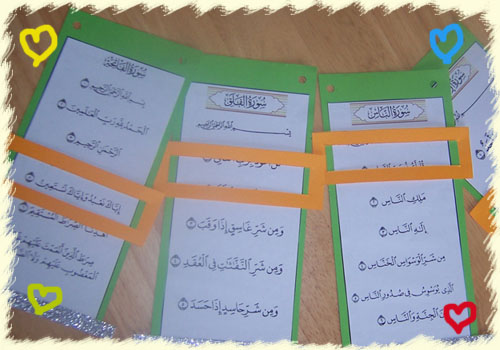 سورة الفاتحة
بسم الله الرحمن الرحيم
الحمد لله رب العالمين
الرحمن الرحيم
إياك نعبد وإياك نستعين
اهدنا الصراط المستقيم
صراط الذين أنعمت عليهم
المغضوب عليهم ولا
سورة الفلق
بسم الله الرحمن الرحيم
ومن شر غاسق إذا وقب
ومن شر النفاثات في العقد
ومن شر حاسد إذا حسد
سورة الناس
ملك الناس
إله الناس
من شر الوسواس الخناس
الذي يوسوس في صدور الناس
الجنة والناس